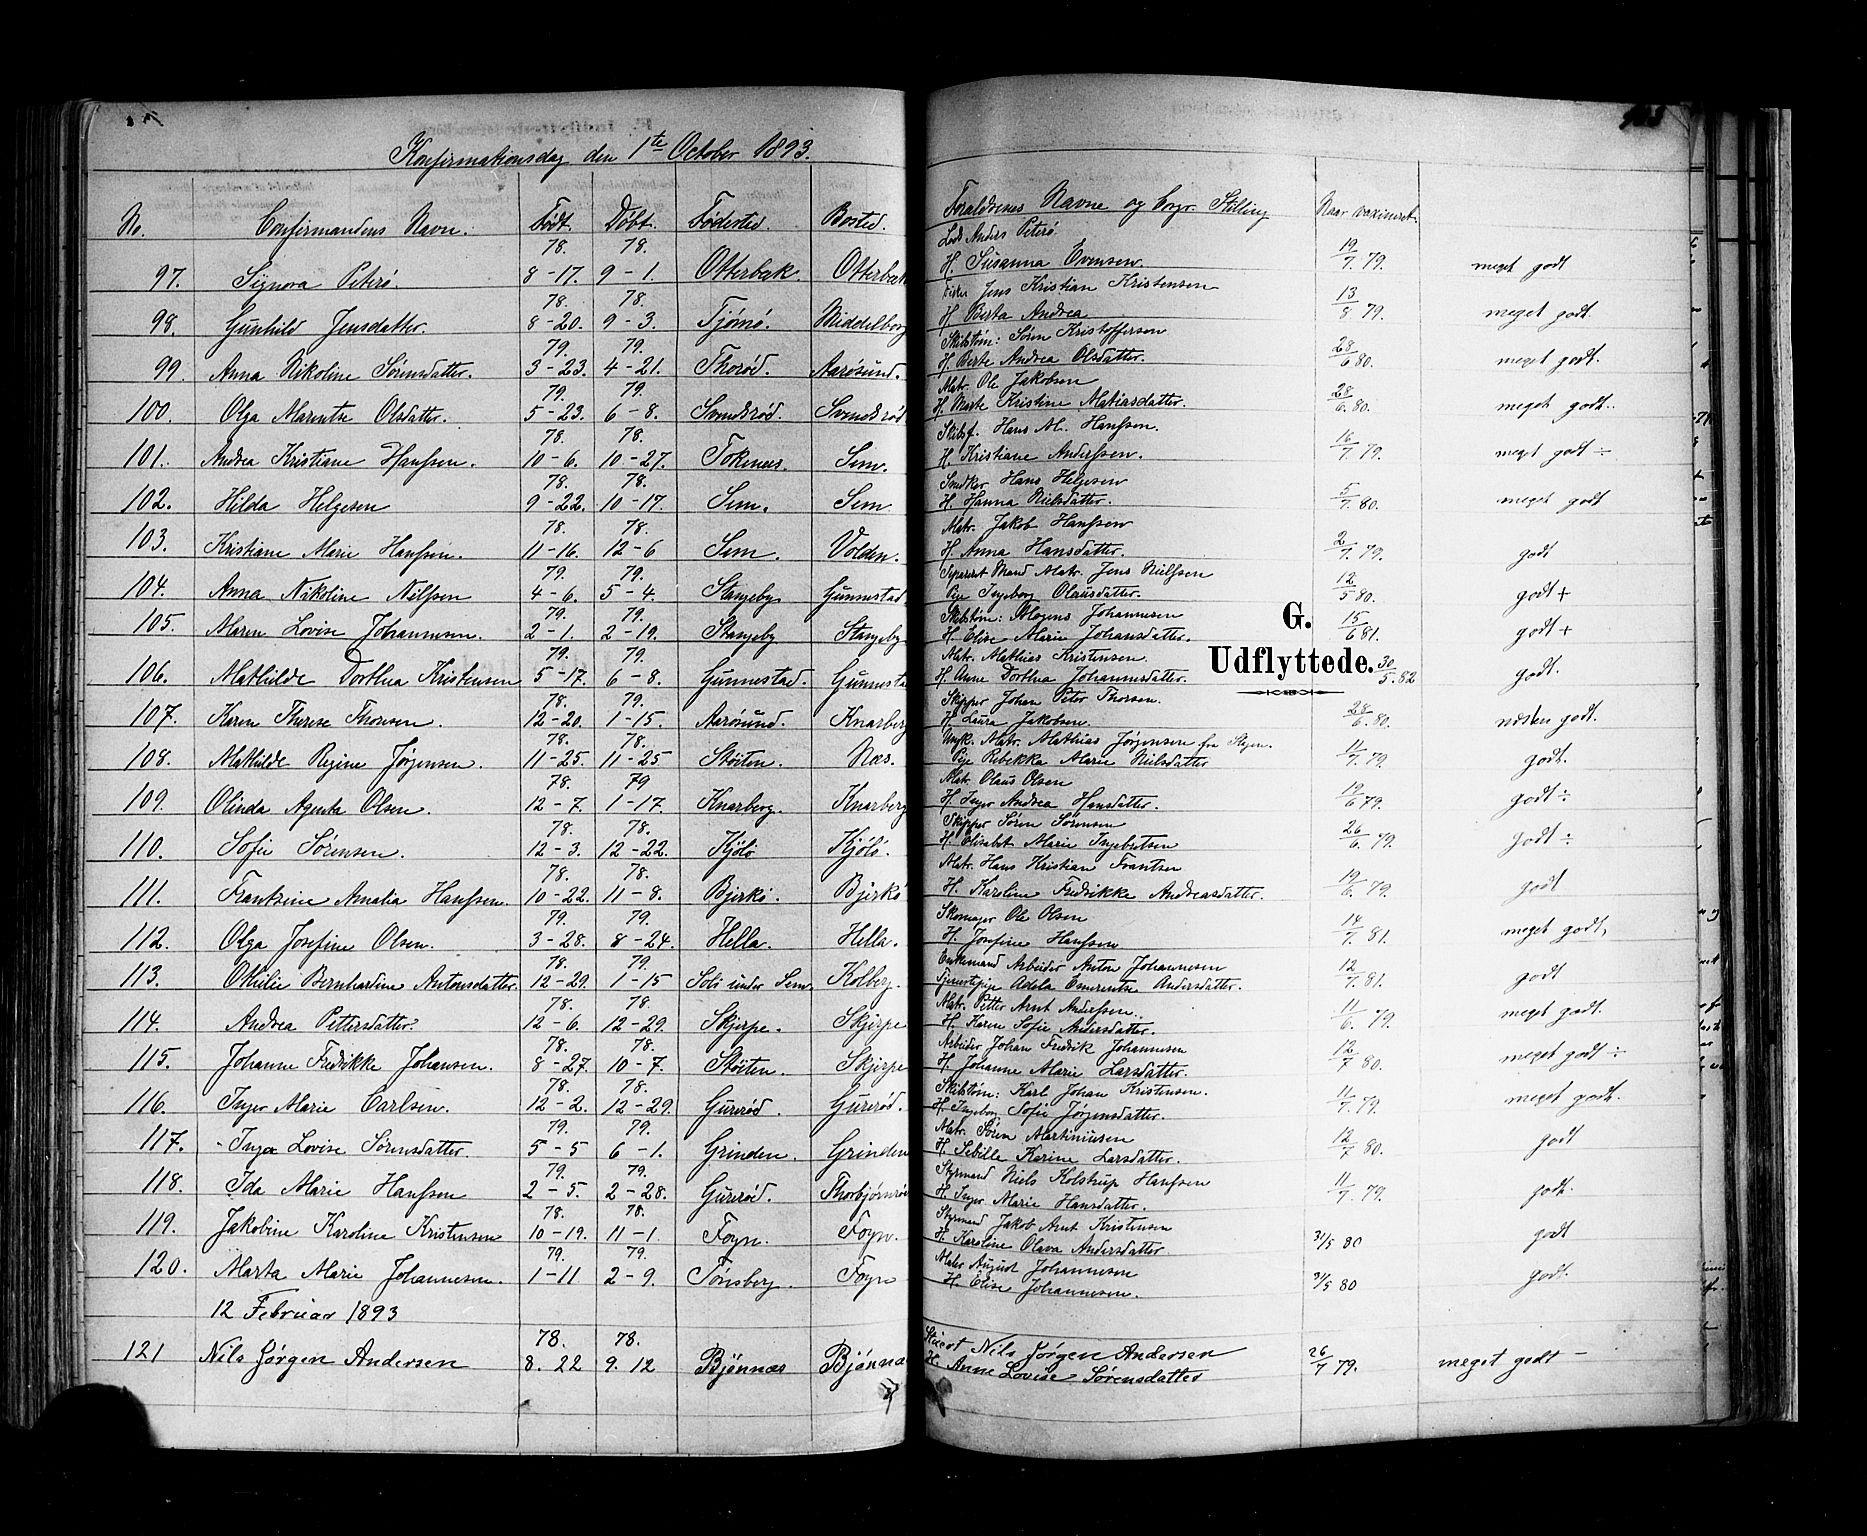 Konfirmationsdag den 1te October 1893.
No. Confirmandens Navn. Født. Døbt. Fødested. Bosted. Forældrenes Navne og borgr. Stilling Naar vaxineret.
78. 78. Lods Anders Peterø
97. Signora Peterø. 8-17. 9-1. Otterbak Otterbak H. Susanna Evensen 19/7 79. meget godt
78. 78. Fisker Jens Kristian Kristensen
98. Gunhild Jensdatter. 8-20. 9-3. Tjømø. Middelborg H. Berta Andrea 13/8 79. meget godt.
79. 79. Skibstøm: Sørn Kristoffersen
99. Anna Nikoline Sørensdatter. 3-23. 4-21. Thorød. Aarøsund. H. Berte Andrea Olsdatter. 28/6 80. meget godt.
79. 79. Matr. Ole Jakobsen
100. Olga Marentse Olsdatter. 5-23. 6-8. Svendsrød. Svendsrød H. Marte Kristine Matiasdatter. 28/6. 80. meget godt.
78. 78. Skibsf. Hans M. Hansson.
101. Andrea Kristiane Hanssen. 10-6. 10-27. Tokenes. Sem. H. Kristiane Anderssen. 16/7 79. meget godt ÷
78. 78. Snedker Hans Helgesen
102. Hilda Helgesen 9-22. 10-17. Sem. Sem H. Hanna Nielsdatter. 5/7. 80. meget godt
78. 78. Matr. Jakob Hanssen
103. Kristiane Marie Hanssen. 11-16. 12-6 Sem. Volden. H. Anna Hansdatter. 2/7. 79. godt
79. 79. Separeret Mand Matr. Jens Nielssen
104. Anna Nikoline Nilssen 4-6. 5-4. Stangeby Gunnestad Pige Ingeborg Olausdatter. 12/5 80. godt +
79. 79. Skibstøm: Mogens Johannesen
105. Maren Lovise Johannesen. 2-1. 2-19. Stangeby Stangeby H. Elise Marie Johansdatter. 15/6 81. godt +
79. 79. Matr. Mathias Kristensen.
106. Mathilde Dorthea Kristensen 5-17. 6-8. Gunnestad. Gunnesta H. Anne Dorthea Johannesdatter. 30/5. 82 godt.
G.
Udflyttede.
78. 79. Skipper Johan Peter Thorsen.
107. Karen Therese Thorsen. 12-20. 1-15. Aarøsund. Knarberg H. Laura Jakobsen 28/6. 80. næsten godt.
78. 78. Ungk. Matr. Mathias Jørgensen fra
108. Mathilde Regine Jørgensen. 11-25. 11-25 Støiten. Næs. Pige Rebekka Marie Nielsdatter 11/7 79. godt.
78. 79 Matr. Olaus Olsen
109. Olinda Agenta Olsen. 12-7. 1-17. Knarberg. Knarberg H. Inger Andrea Hansdatter. 19/6 79. godt ÷
78. 78. Skipper Søren Sørensen
110. Sofie Sørensen. 12-3. 12-22. Kjølø Kjølø. H. Elisabet Marie Ingebretsen 26/6. 79. godt ÷
78. 78. Matr. Hans Kristian Frantsen
111. Frantsine Amalia Hanssen. 10-22. 11-8. Bjerkø. Bjerkø H. Karoline Fredrikke Andreasdatter. 19/6. 79. godt
79. 79. Skomager Ole Olsen
112. Olga Josefine Olsen. 3-28. 8-24. Hella. Hella. H. Josefine Hanssen 14/7. 81. meget godt.
78. 79. Enkemand Arbeider Anton Johannesen
113. Othilie Bernhardine Antonsdatter. 12-29. 1-15 Solø under Sem. Kolberg. Tjenestepige Adela Emerentse Andersdatter. 12/7. 81. godt
78. 78 Matr. Petter Arnt Anderssen.
114. Andrea Pettersdatter. 12-6. 12-29. Skjerpe. Skjerpe H. Karen Sofie Andersdatter. 11/6. 79. meget godt.
78. 78. Arbeider Johan Fredrik Johannesen
115. Johanne Fredrikke Johansen. 8-27. 10-7. Støiten. Skjerpe H. Johanne Marie Larsdatter. 12/7 80. meget godt ÷
78. 78. Skibstøm: Karl Johan Kristensen.
116. Inger Marie Carlsen. 12-2. 12-29. Gurerød. Gurerød. H. Ingeborg Sofie Jørgensdatter. 11/7. 79. meget godt.
79. 79. Matr. Søren Martiniusen
117. Inga Lovise Sørensdatter 5-5 6-1. Grinden. Grinden H. Sebille Karine Larsdatter. 12/7 80. godt
79. 79. Styrmand Niels Kolstrup Hanssen
118. Ida Marie Hanssen 2-5. 2-28. Gurerød. Thorbjørnrø H. Inger Marie Hansdatter. 11/7. 79. godt.
78. 78. Styrmand Jakob Arnt Kristensen
119. Jakobine Karoline Kristensen 10-19. 11-1. Foyn. Foyn. H. Karoline Olava Andersdatter 31/5 80 godt
79. 79. Maler August Johannesen
120. Marta Marie Johannesen. 1-11 2-9. Tønsberg. Foyn H. Elise Johannesen. 31/5 80 godt.
12 Februar 1893
78. 78. Stuert Nils Jørgen Andersen
121 Nils Jørgen Andersen 8. 22 9. 12 Bjønnæs Bjønnæ H. Anne Lovise Sørensdatter 26/7 79. meget godt -